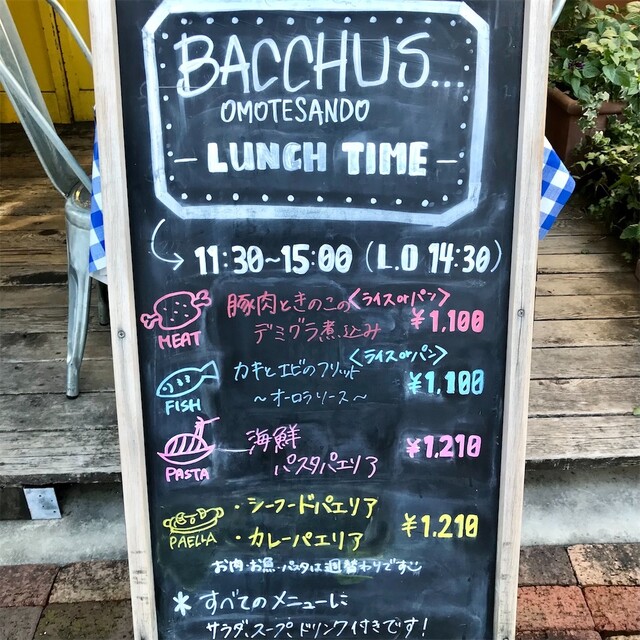 BACCHUS...
OMOTESANDO
– LUNCH TIME –
11:30~15:00 (L.O 14:30)
MEAT
豚肉ときのこの <ライスorパン>
デミグラ煮込み ¥1,100
FISH
カキとエビのフリット <ライスorパン>
~オーロラソース~ ¥1,100
PASTA
海鮮
パスタパエリア ¥1,210
PAELLA
・シーフードパエリア
・カレーパエリア ¥1,210
お肉・お魚・パスタは週替わりです
*すべてのメニューに
サラダ、スープ、ドリンク付きです!